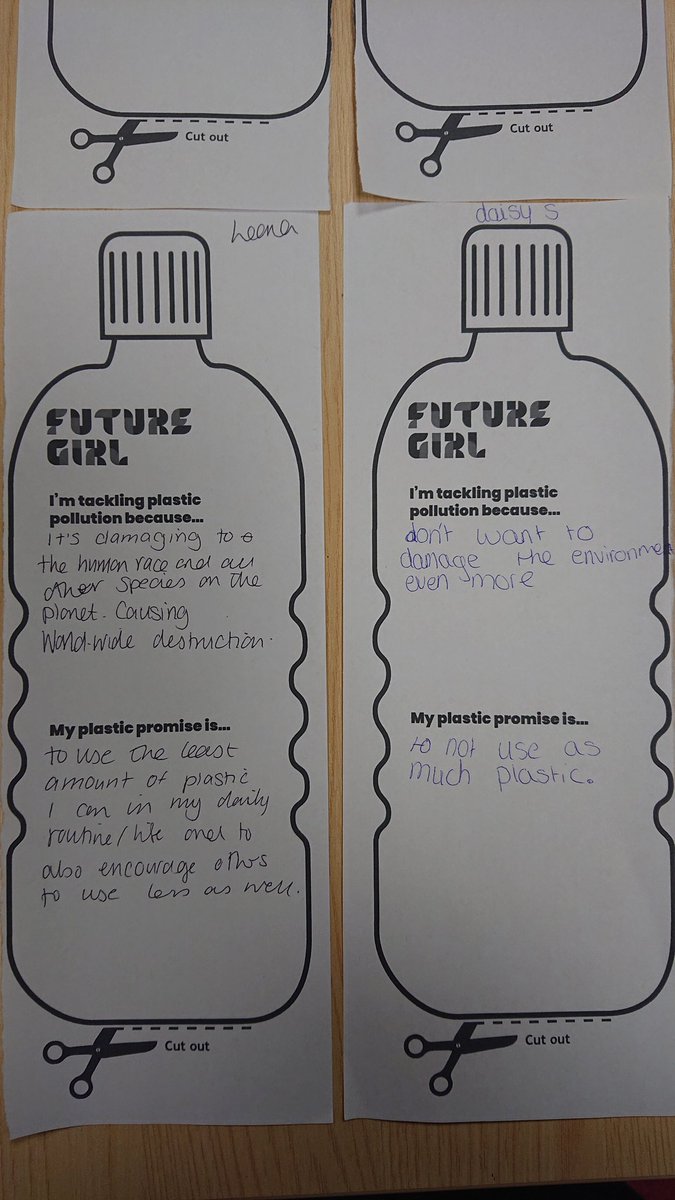 Cut out
Cut out
Leena
FUTURE
GIRL
I'm tackling plastic
pollution because...
It's damaging to
the human race and all
other species on the
planet. Causing
World-wide destruction.
My plastic promise is...
to use the least
amount of plastic
I can in my daily
routine/life and to
also encourage others
to use less as well.
Cut out
daisy s
FUTURE
GIRL
I'm tackling plastic
pollution because...
don't want to
damage the environment
even more
My plastic promise is...
to not use as
much plastic.
Cut out